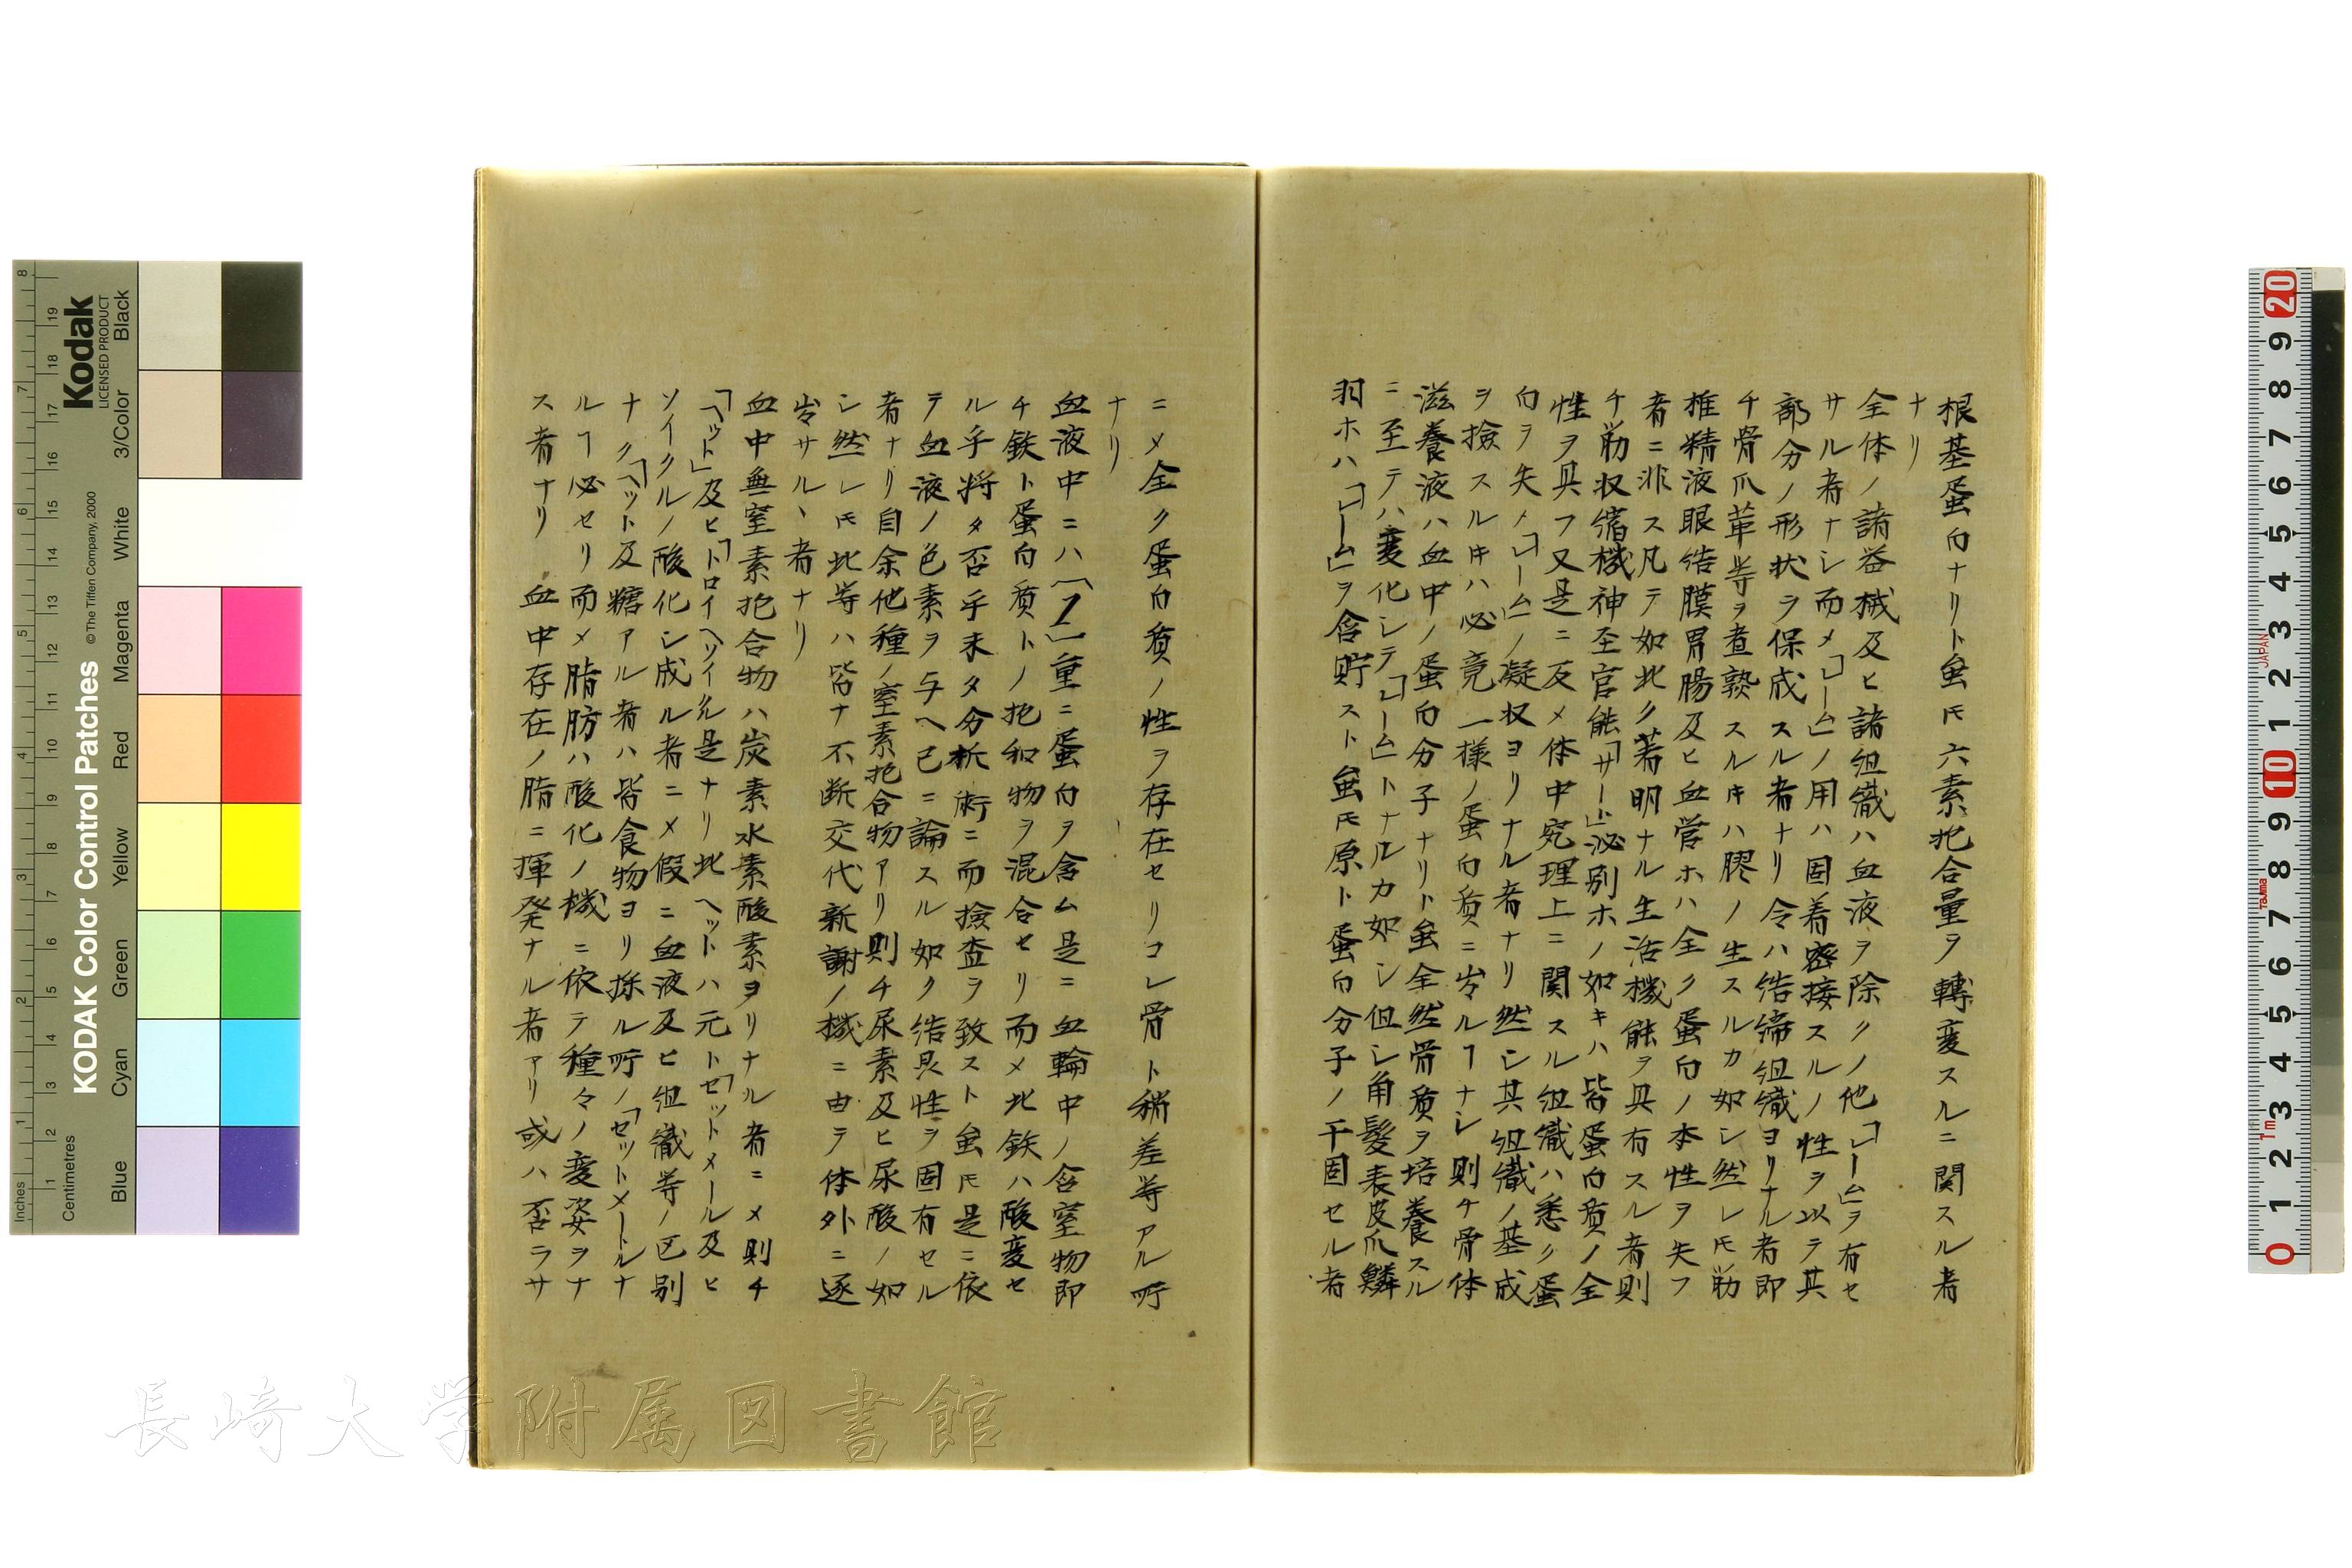 根基蛋白ナリト虽𪜈六素抱合量ヲ轉変スルニ関スル者
ナリ
全体ノ諸器械及ヒ諸組織ハ血液ヲ除クノ他「レーム」ヲ有セ
サル者ナシ而メ「レーム」ノ用ハ固着密接スルノ性ヲ以テ其
部分ノ形状ヲ保成スル者ナリ令ハ結締組織ヨリナル者即
チ骨爪革等ヲ煮熟スルキハ膠ノ生スルカ如シ然レ𪜈筋
椎精液眼結膜胃腸及ヒ血管ホハ全ク蛋白ノ本性ヲ失フ
者ニ非ス凡テ如此ク著明ナル生活機能ヲ具有スル者則
チ筋収縮機神至官能「サート」泌別ホノ如キハ皆蛋白質ノ全
性ヲ具フ又是ニ反メ体中究理上ニ関スル組織ハ悉ク蛋
白ヲ失メ「レーム」ノ凝収ヨリナル者ナリ然シ其組織ノ基成
ヲ撿スルキハ必竟一様ノ蛋白質ニ岑ルヿナシ則チ骨体
滋養液ハ血中ノ蛋白分子ナリト虽全然骨質ヲ培養スル
ニ至テハ変化シテ「レーム」トナルカ如シ但シ角髮表皮爪鱗
羽ホハ「レーム」ヲ含貯スト虽𪜈原ト蛋白分子ノ干固セル者
ニメ全ク蛋白質ノ性ヲ存在セリコレ骨ト稍差等アル所
ナリ
血液中ニハ「1」重ニ蛋白ヲ含ム是ニ血輪中ノ含窒物即
チ鉄ト蛋白質トノ抱和物ヲ混合セリ而メ此鉄ハ酸変セ
ル乎将タ否乎未タ分析術ニ而撿査ヲ致スト虽𪜈是ニ依
テ血液ノ色素ヲ与ヘ已ニ論スル如ク結晨性ヲ固有セル
者ナリ自余他種ノ窒素抱合物アリ則チ尿素及ヒ尿酸ノ如
シ然レ𪜈此等ハ皆ナ不断交代新謝ノ機ニ由テ体外ニ逐
岑サルヽ者ナリ
血中無窒素抱合物ハ炭素水素酸素ヨリナル者ニメ則チ
「ヘット」及ヒ「トロイヘソイクル是ナリ此ヘットハ元ト「セットメール及ヒ
ソイクルノ酸化シ成ル者ニメ假ニ血液及ヒ組織等ノ区別
ナク「ヘット及糖アル者ハ皆食物ヨリ採ル所ノ「セットメートルナ
ルヿ必セリ而メ脂肪ハ酸化ノ機ニ依テ種々ノ変姿ヲナ
ス者ナリ 血中存在ノ脂ニ揮発ナル者アリ或ハ否ラサ
Kodak
LICENSED PRODUCT
KODAK Color Control Patches
© The Tiffen Company, 2000
Inches
Centimetres
Blue
Cyan
Green
Yellow
Red
Magenta
White
3/Color
Black
JAPAN
TaJima
長崎大学附属図書館